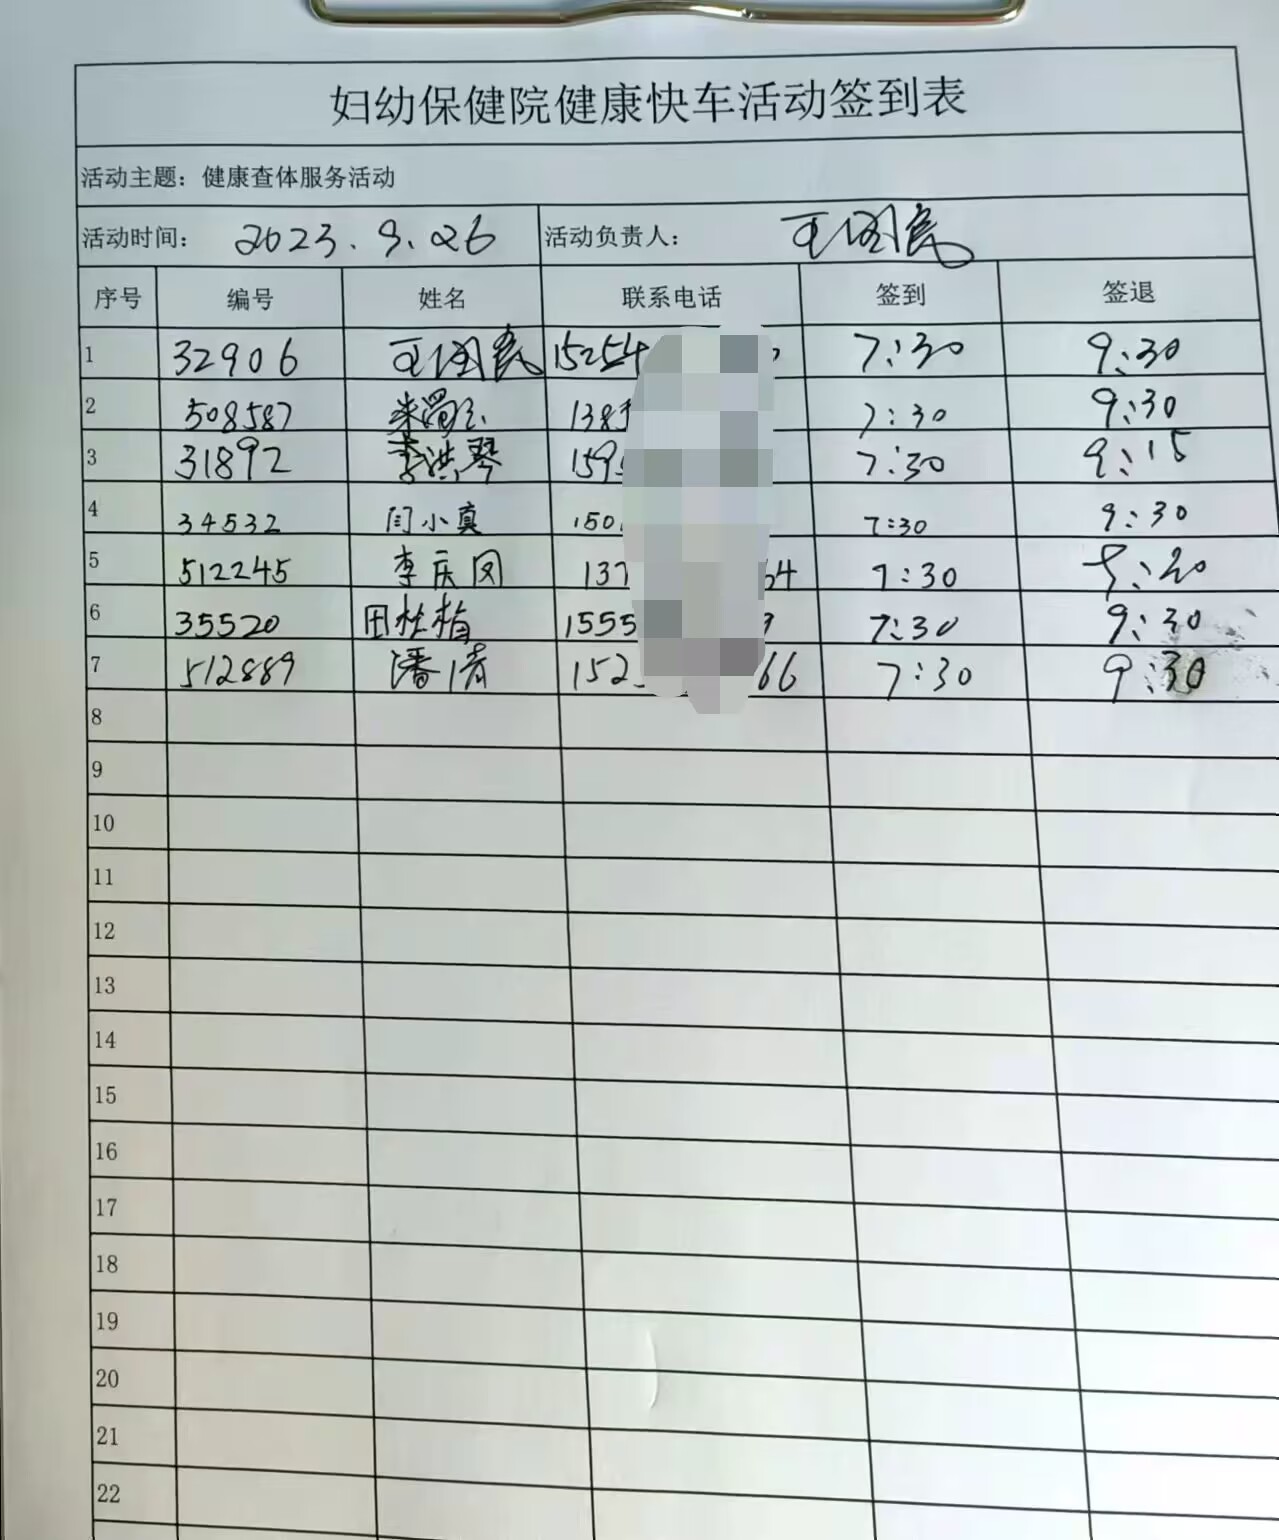 妇幼保健院健康快车活动签到表
活动主题：健康查体服务活动
活动时间： 2023.9.26 活动负责人： 王国民
序号 编号 姓名 联系电话 签到 签退
1 32906 王国民 15254 7:30 9:30
2 508587 1383 7:30 9:30
3 31892 李洪琴 159 7:30 9:15
4 34532 闫小真 150 7:30 9:30
5 512245 李庆凤 137 64 7:30 9:20
6 35520 田桂梅 1555 9 7:30 9:30
7 512889 潘倩 152 66 7:30 9:30
8
9
10
11
12
13
14
15
16
17
18
19
20
21
22